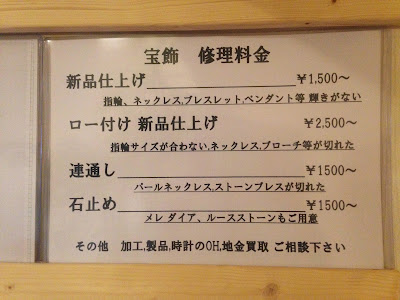 宝飾 修理料金
新品仕上げ ￥1,500～
指輪、ネックレス,ブレスレット,ペンダント等 輝きがない
ロー付け 新品仕上げ ￥2,500～
指輪サイズが合わない,ネックレス,ブローチ等が切れた
連通し ￥1500～
パールネックレス,ストーンブレスが切れた
石止め ￥1500～
メレ ダイア、ルースストーンもご用意
その他 加工,製品,時計のOH,地金買取 ご相談下さい